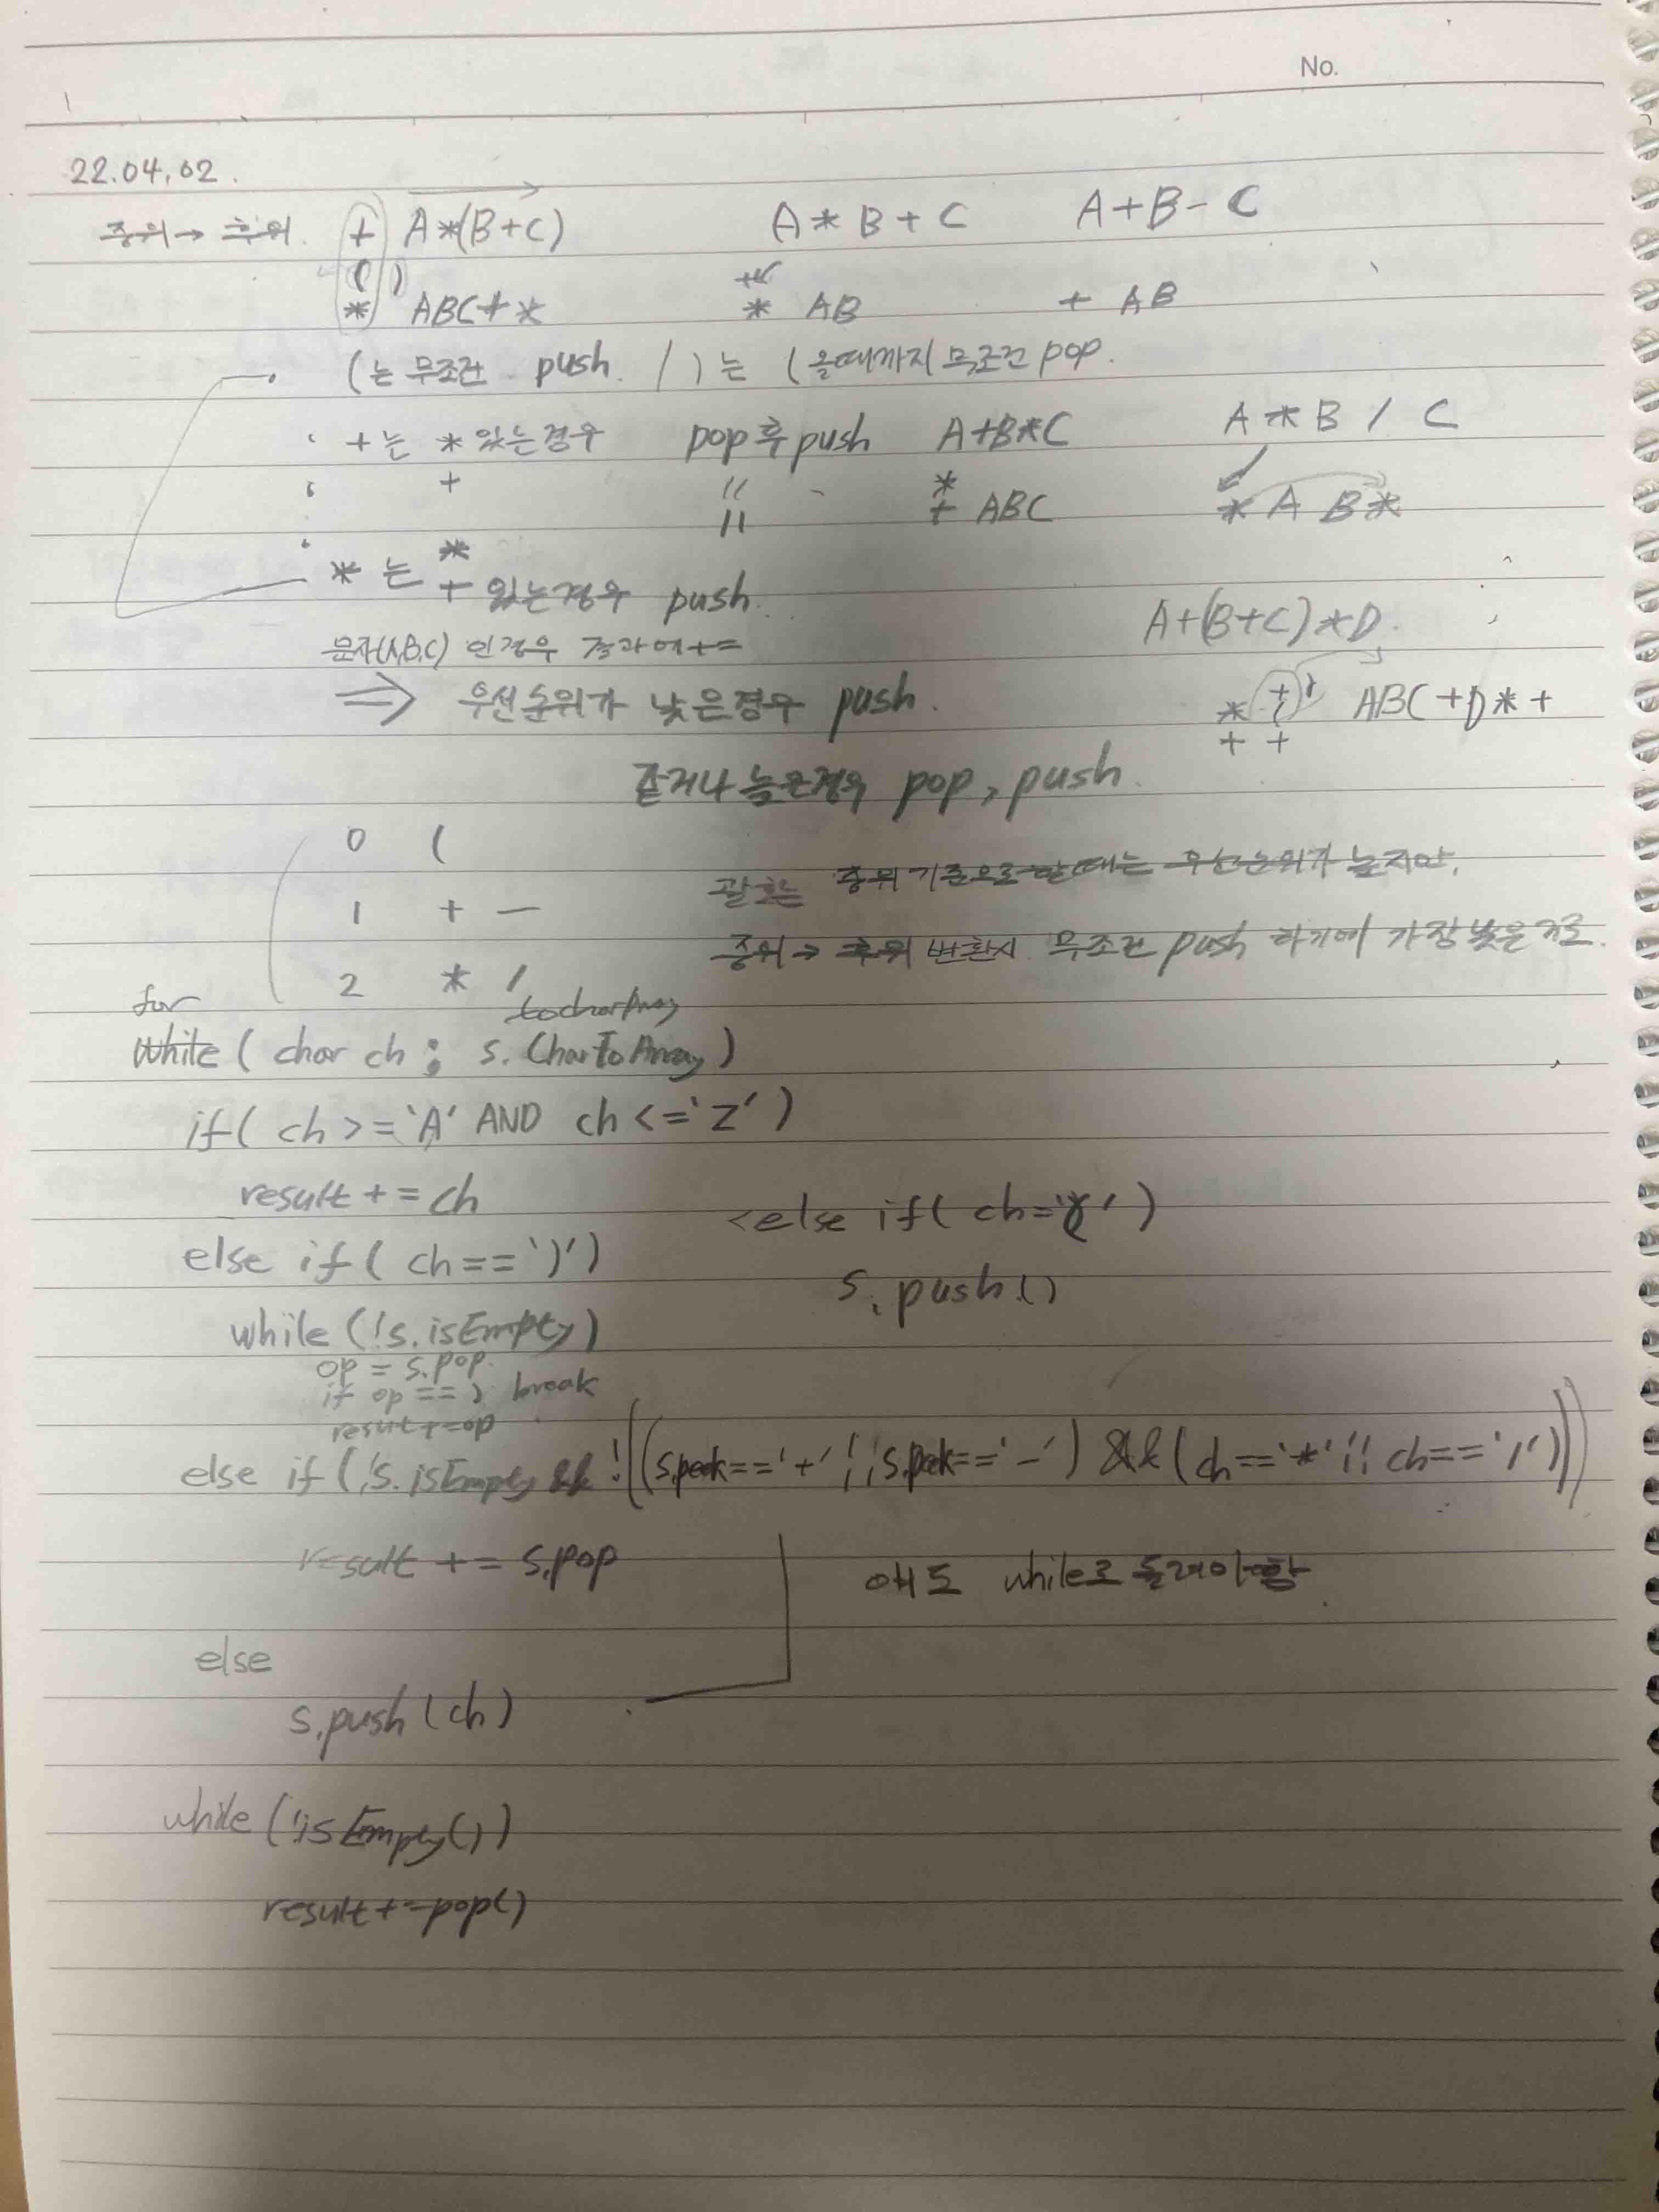 No.
22.04.02.
중위→후위. + A*(B+C) A*B+C A+B-C
( )
* ABC+* * AB + AB
(는 무조건 push. / )는 (올때까지 무조건 pop.
+는 *있는경우 pop후push A+B*C A*B/C
+ 〃 * 
〃 + ABC * A B*
* 는 *
+ 있는경우 push.
A+(B+C)*D.
문자(A,B,C) 인경우 결과에+=
⇒ 우선순위가 낮은경우 push. * + ) ABC+D*+
+ +
같거나 높은경우 pop, push.
0 (
괄호는 중위기준으로할때는 우선순위가 높지만,
1 + -
중위→후위 변환시 무조건 push 하기에 가장낮은 거로.
2 * /
for toCharArray
while ( char ch ; s. CharToArray)
if( ch >= 'A' AND ch <= 'Z' )
result += ch
<else if( ch='(' )
else if( ch==')')
s.push()
while (!s.isEmpty)
op = s.pop.
if op == ) break
result+=op
else if(!s.isEmpty && !((s.peek=='+' || s.peek=='-') && (ch=='*' || ch=='/')))
result += s.pop
얘도 while로 돌려야함.
else
s.push(ch)
while (!isEmpty())
result+=pop()